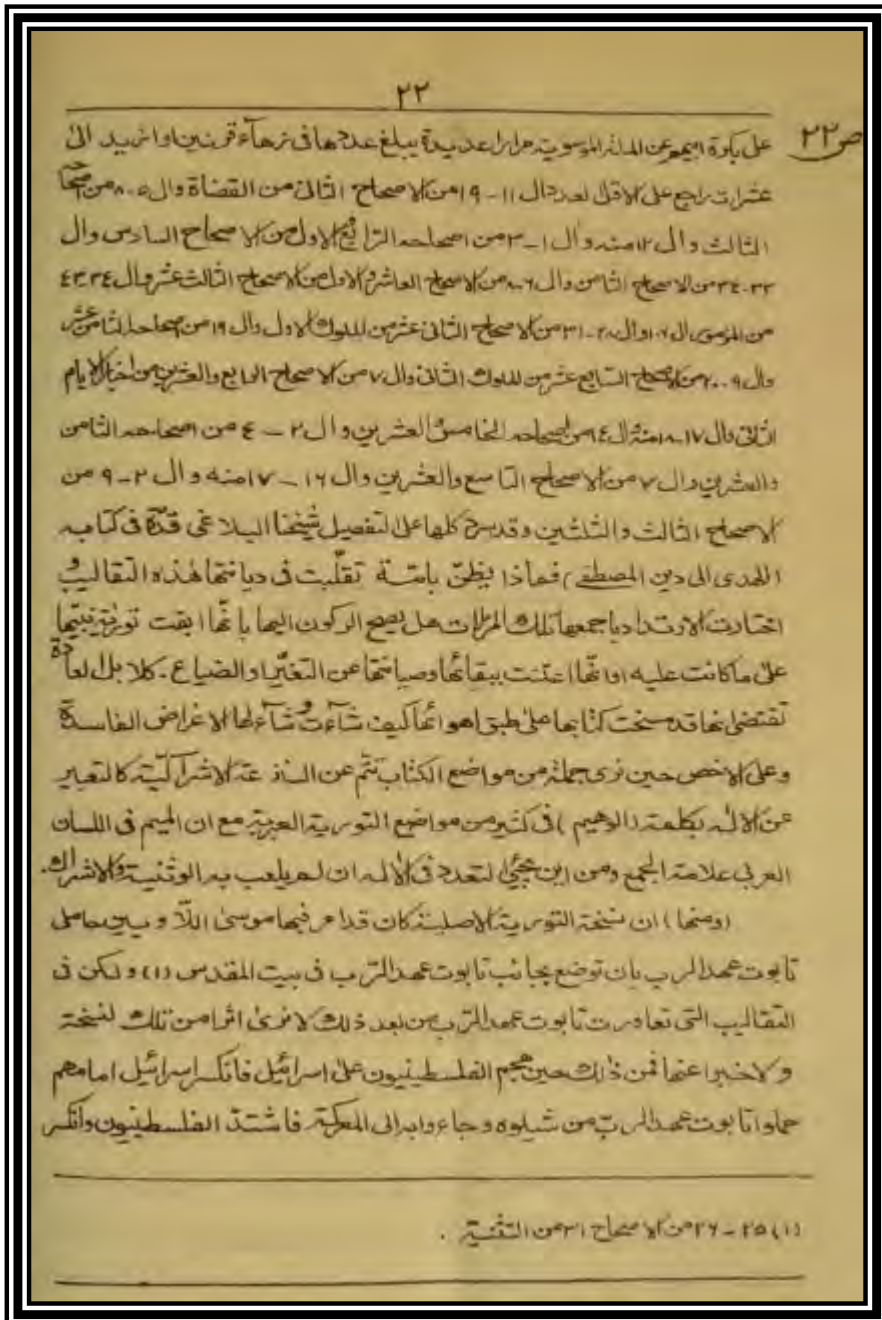 ٢٢
ص ٢٢
على بكرة ابيهم عن الديانة الموسوية مرارا عديدة يبلغ عددها في زهآء قرنين او ازيد الى
عشرات راجع على الاقل لعد دال ١١ - ١٩ من الاصحاح الثاني من القضاة وال ٥ - ٨ من اصحا
الثالث وال ١٢ منه وال ١ - ٣ من اصحاحه الرابع الاول من الاصحاح السادس وال
٣٣ - ٣٤ من الاصحاح الثامن وال ٦ - ٨ من الاصحاح العاشر والاول من الاصحاح الثالث عشر وال ٣٤ ٤٣
من المزمور ال ١٠٦ وال ٢٨ - ٣١ من الاصحاح الثاني عشر من الملوك الاول وال ١٩ من اصحاحه الثامن عشر
وال ٩ - ٢٠ من الاصحاح السابع عشر من الملوك الثاني وال ٧ من الاصحاح الرابع والعشرين من اخبار الايام
الثاني وال ١٧ - ١٨ منه وال ١٤ من اصحاحه الخامس والعشرين وال ٢ - ٤ من اصحاحه الثامن
والعشرين وال ٧ من الاصحاح التاسع والعشرين وال ١٦ - ١٧ منه وال ٢ - ٩ من
الاصحاح الثالث والثلثين وقد سرد كلها على التفصيل شيخنا البلاغي قدّه في كتابه
(الهدى الى دين المصطفى) فماذا يظنّ بامّة تقلّبت في ديانتها هذه التقاليب و
اختارت الارتداد باجمعها تلك المرات هل يصح الركون اليها بانّها ابقت توراة نبيّها
على ما كانت عليه او انّها اعتنت ببقائها وصيانتها عن التغيّر او الضياع . كلا بل العادة
تقتضي انها قد مسخت كتابها على طبق اهوائها كيف شاءت وشاء لها الاغراض الفاسدة
وعلى الاخص حين نرى جملة من مواضع الكتاب تنمّ عن النزعة الاشراكيّة كالتعبير
عن الاله بكلمة (الوهيم) في كثير من مواضع التورية العبرية مع ان الميم في اللسان
العربي علامة الجمع ومن اين يجيئ التعدد في الاله ان لم يلعب به الوثنية والاشراك.
(ومنها) ان نسخة التورية الاصلية كان قد امر فيها موسى اللاويين حاملي
تابوت عهد الرب بان توضع بجانب تابوت عهد الرّب في بيت المقدس (١) ولكن في
التقاليب التي تعاورت تابوت عهد الرّب من بعد ذلك لا نرى اثرا من تلك النسخة
ولا خبرا عنها فمن ذلك حين هجم الفلسطينيون على اسرائيل فانكسر اسرائيل امامهم
حملوا تابوت عهد الربّ من شيلوه وجاءوا به الى المعركة فاشتدّ الفلسطينيون وانكسر
(١) ٢٥ - ٢٦ من الاصحاح ٣١ من التثنية .